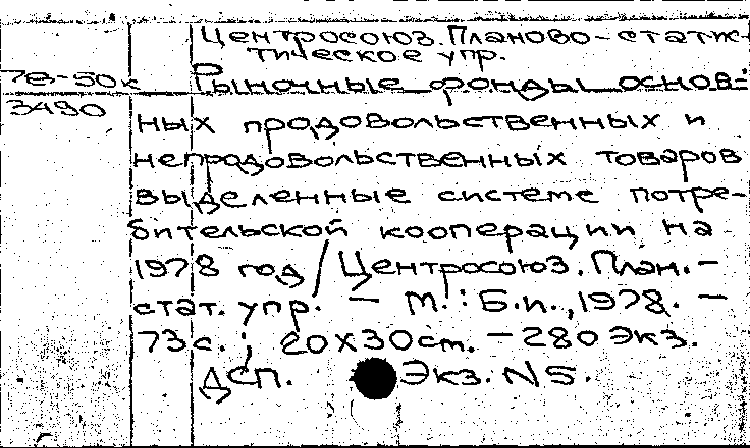 Центросоюз. Планово-статис-
тическое упр.
78-50к Рыночные фонды основ-
3490
ных продовольственных и
непродовольственных товаров
выделенные системе потре-
бительской кооперации на
1978 год / Центросоюз. План.-
стат. упр. – М.: Б.и., 1978. –
73с.; 20х30см. – 280 экз.
ДСП. Экз. N5.